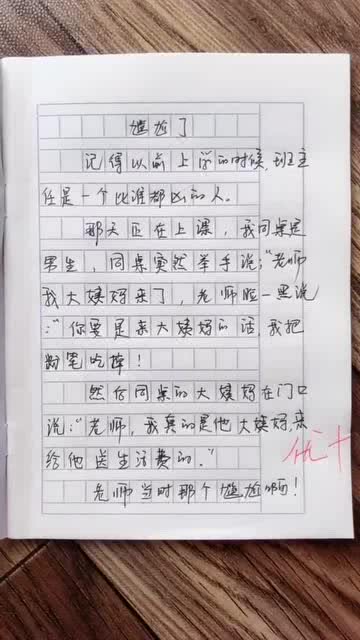 尴尬了
记得以前上学的时候,班主
任是一个比谁都凶的人。
那天正在上课，我同桌是
男生，同桌突然举手说:“老师
我大姨妈来了，老师脸一黑说
:“你要是来大姨妈的话,我把
粉笔吃掉!
然后同桌的大姨妈在门口
说:“老师，我真的是他大姨妈,来
给他送生活费的。”
老师当时那个尴尬啊!
优+